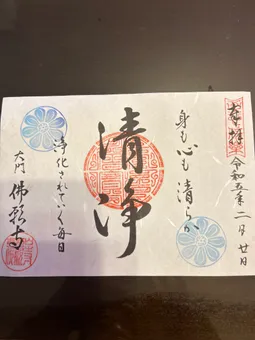 奉拝
令和五年二月廿日
身も心も清らか
清浄
浄化されていく毎日
大門
佛願寺